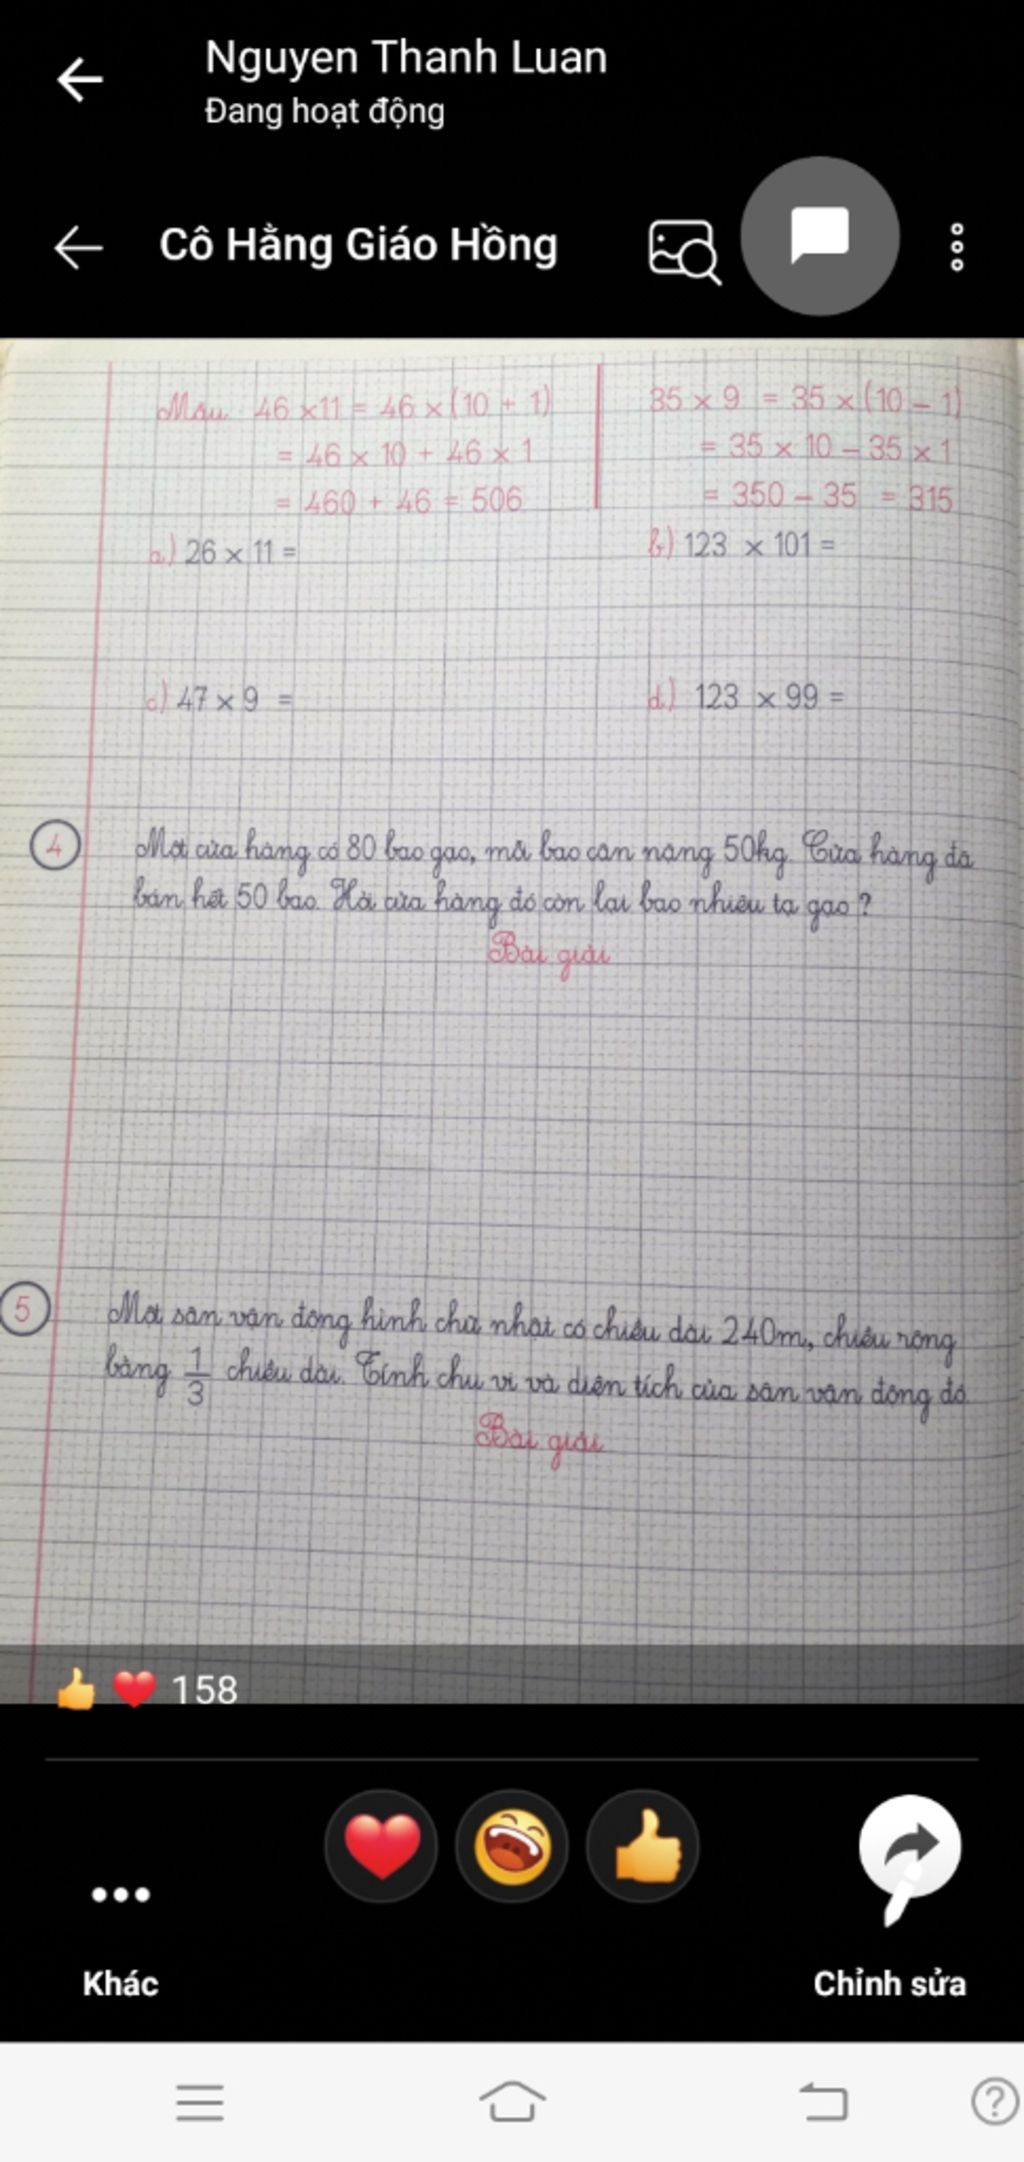 Nguyen Thanh Luan
Đang hoạt động
Cô Hằng Giáo Hồng
Mẫu 46 × 11 = 46 × (10 + 1)
= 46 × 10 + 46 × 1
= 460 + 46 = 506
35 × 9 = 35 × (10 – 1)
= 35 × 10 – 35 × 1
= 350 – 35 = 315
a) 26 × 11 =
b) 123 × 101 =
c) 47 × 9 =
d) 123 × 99 =
4 Một cửa hàng có 80 bao gạo, mỗi bao cân nặng 50kg. Cửa hàng đã
bán hết 50 bao. Hỏi cửa hàng đó còn lại bao nhiêu tạ gạo ?
Bài giải
5 Một sân vận động hình chữ nhật có chiều dài 240m, chiều rộng
bằng 1/3 chiều dài. Tính chu vi và diện tích của sân vận động đó.
Bài giải
158
Khác
Chỉnh sửa
?